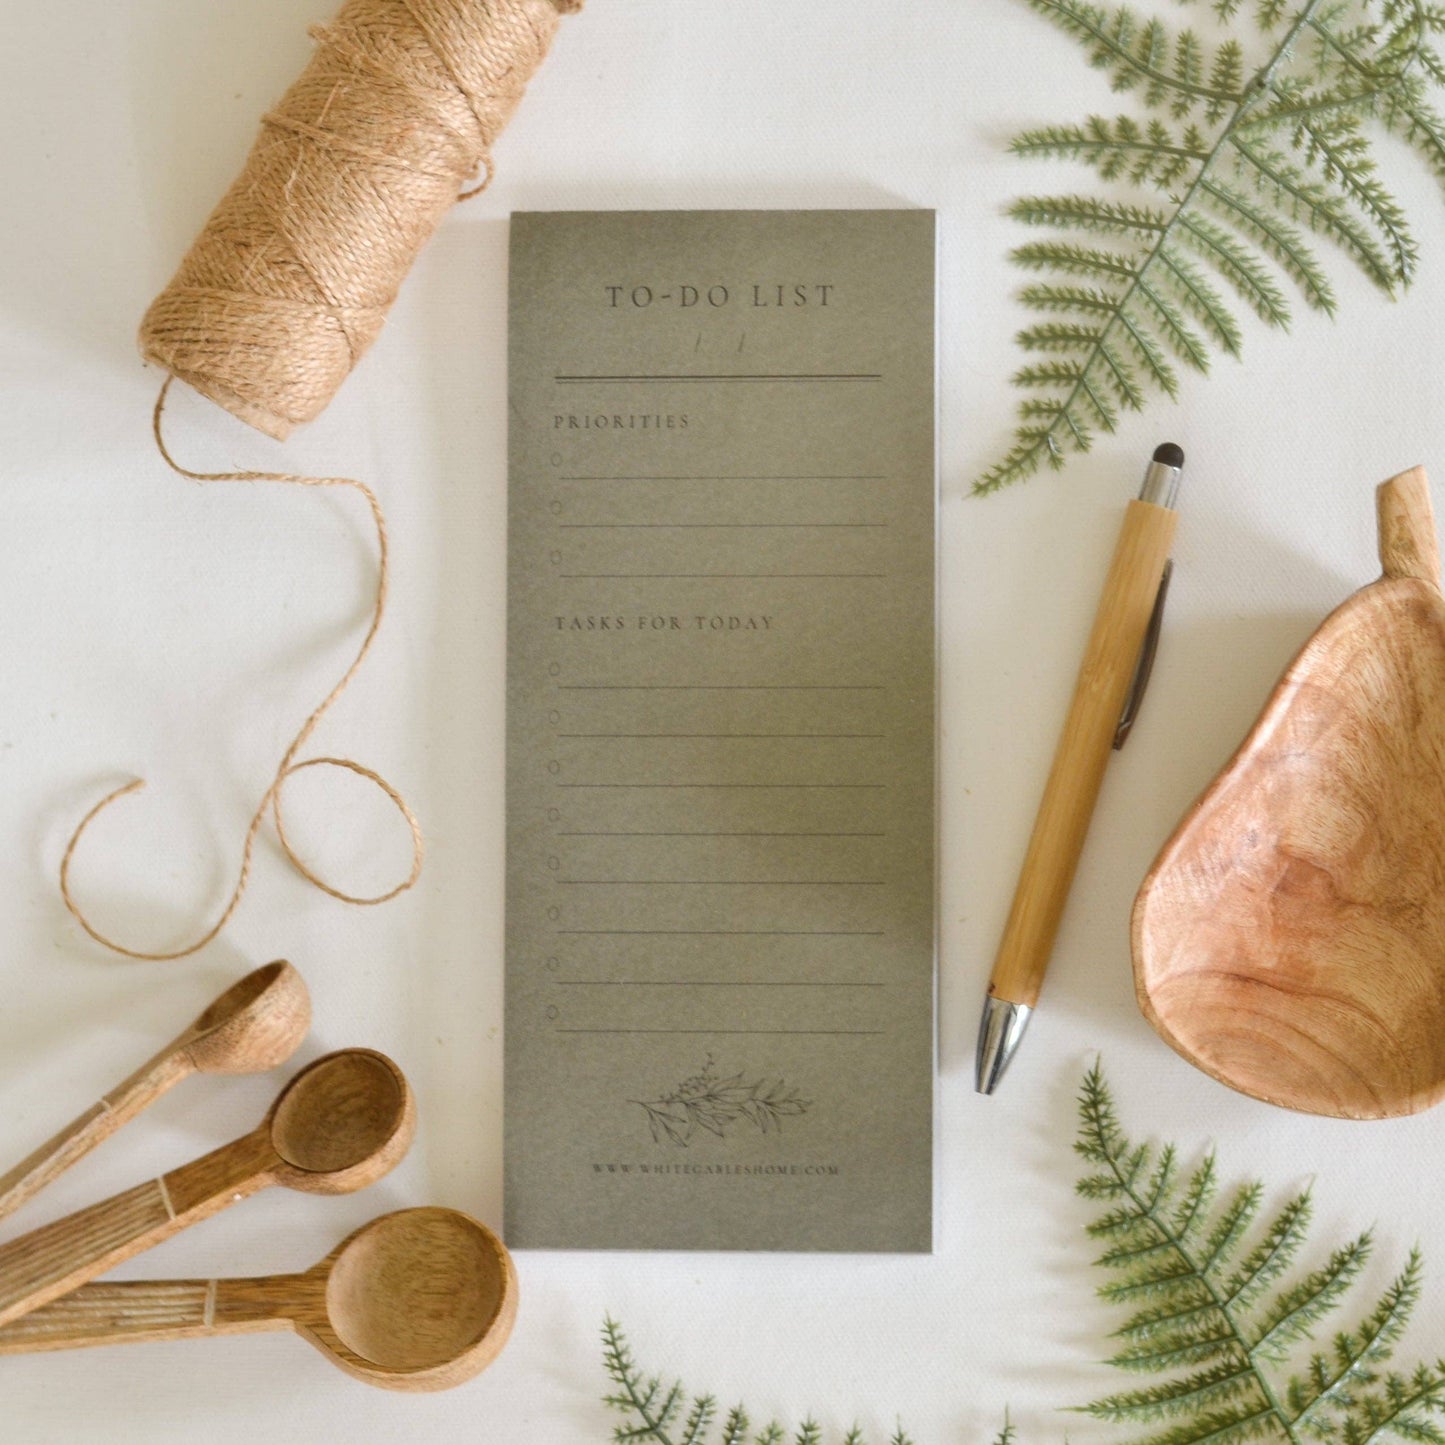 TO-DO LIST
/ /
PRIORITIES
TASKS FOR TODAY
WWW.WHITEGABLESHOME.COM